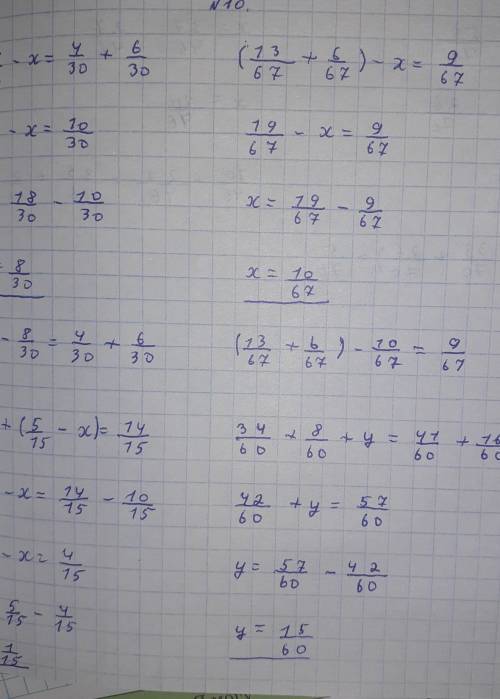 N10.
- x = 4/30 + 6/30
- x = 10/30
18/30 - 10/30
= 8/30
- 8/30 = 4/30 + 6/30
+ (5/15 - x) = 14/15
- x = 14/15 - 10/15
- x = 4/15
5/15 - 4/15
1/15
(13/67 + 6/67) - x = 9/67
19/67 - x = 9/67
x = 19/67 - 9/67
x = 10/67
(13/67 + 6/67) - 10/67 = 9/67
34/60 + 8/60 + y = 41/60 + 16/60
42/60 + y = 57/60
y = 57/60 - 42/60
y = 15/60